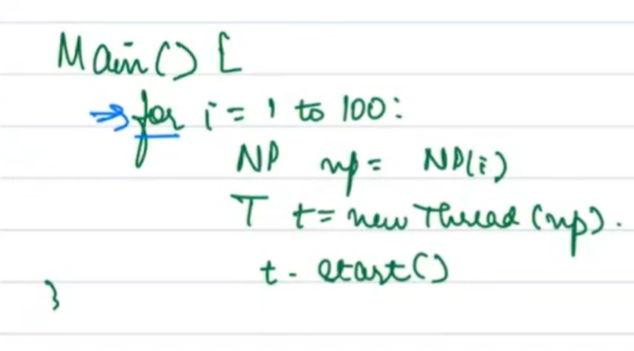 Main() {
for i = 1 to 100:
NP np = NP(i)
T t = new Thread (np).
t. start()
}